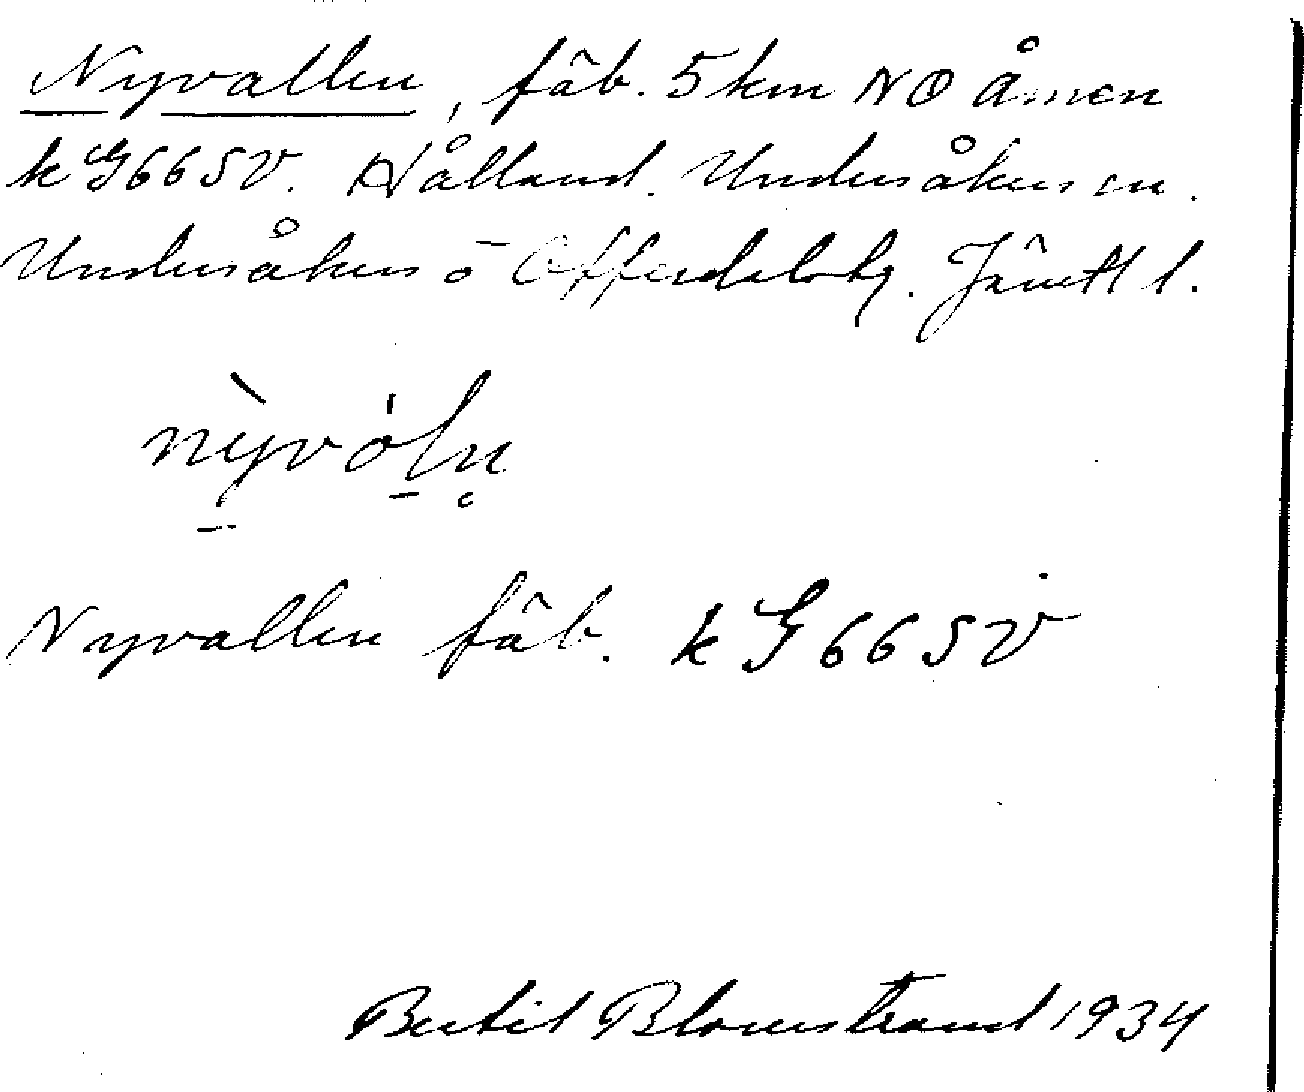 Nyvallen, fäb. 5 km NO Åmen
k G66SV. Hålland. Undersåkers sn.
Undersåkers o Offerdals tg. Jämtl l.
nỳvóln̥
Nyvallen fäb. k G66SV
Bertil Blomstrand 1934